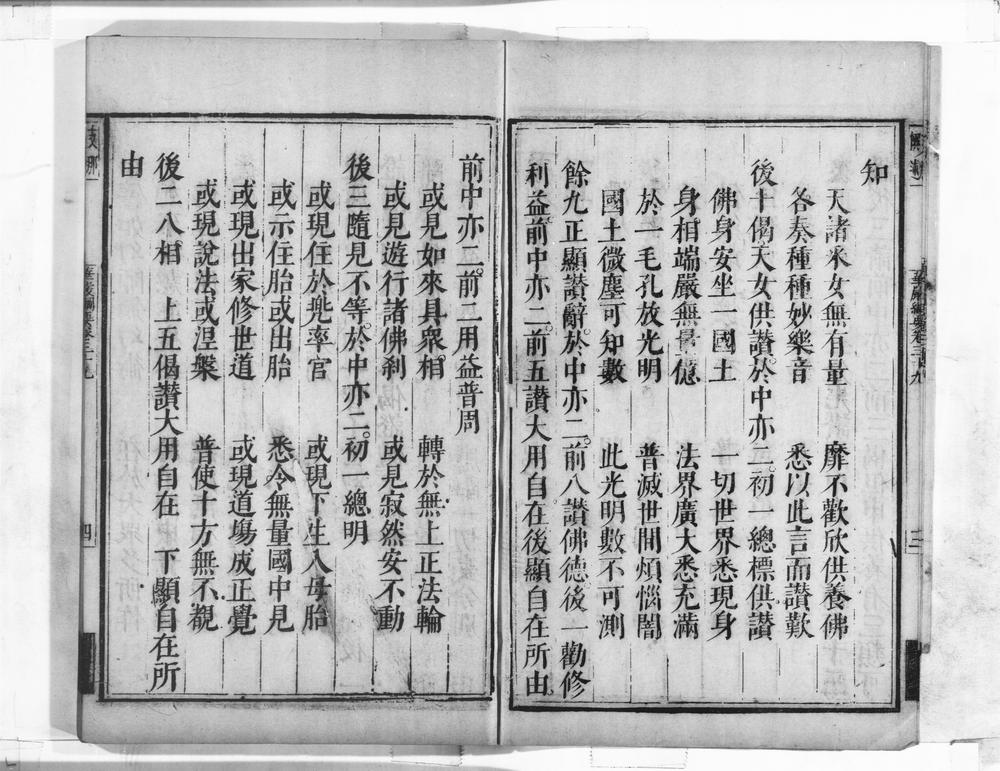 知
天諸釆女無有量　靡不歡欣供養佛
各奏種種妙樂音　悉以此言而讚歎
後十偈天女供讚。於中亦二。初一總標供讚
佛身安坐一國土　一切世界悉現身
身相端嚴無量億　法界廣大悉充滿
於一毛孔放光明　普滅世間煩惱闇
國土微塵可知數　此光明數不可測
餘九正顯讚辭。於中亦二。前八讚佛德。後一勸修
利益。前中亦二。前五讚大用自在。後顯自在所由。
前中亦二。前二用益普周
或見如來具衆相　轉於無上正法輪
或見遊行諸佛剎　或見寂然安不動
後三隨見不等。於中亦二。初一總明
或現住於兜率宮　或現下生入母胎
或示住胎或出胎　悉令無量國中見
或現出家修世道　或現道場成正覺
或現說法或涅槃　普使十方無不覩
後二八相　上五偈讚大用自在　下顯自在所
由
四